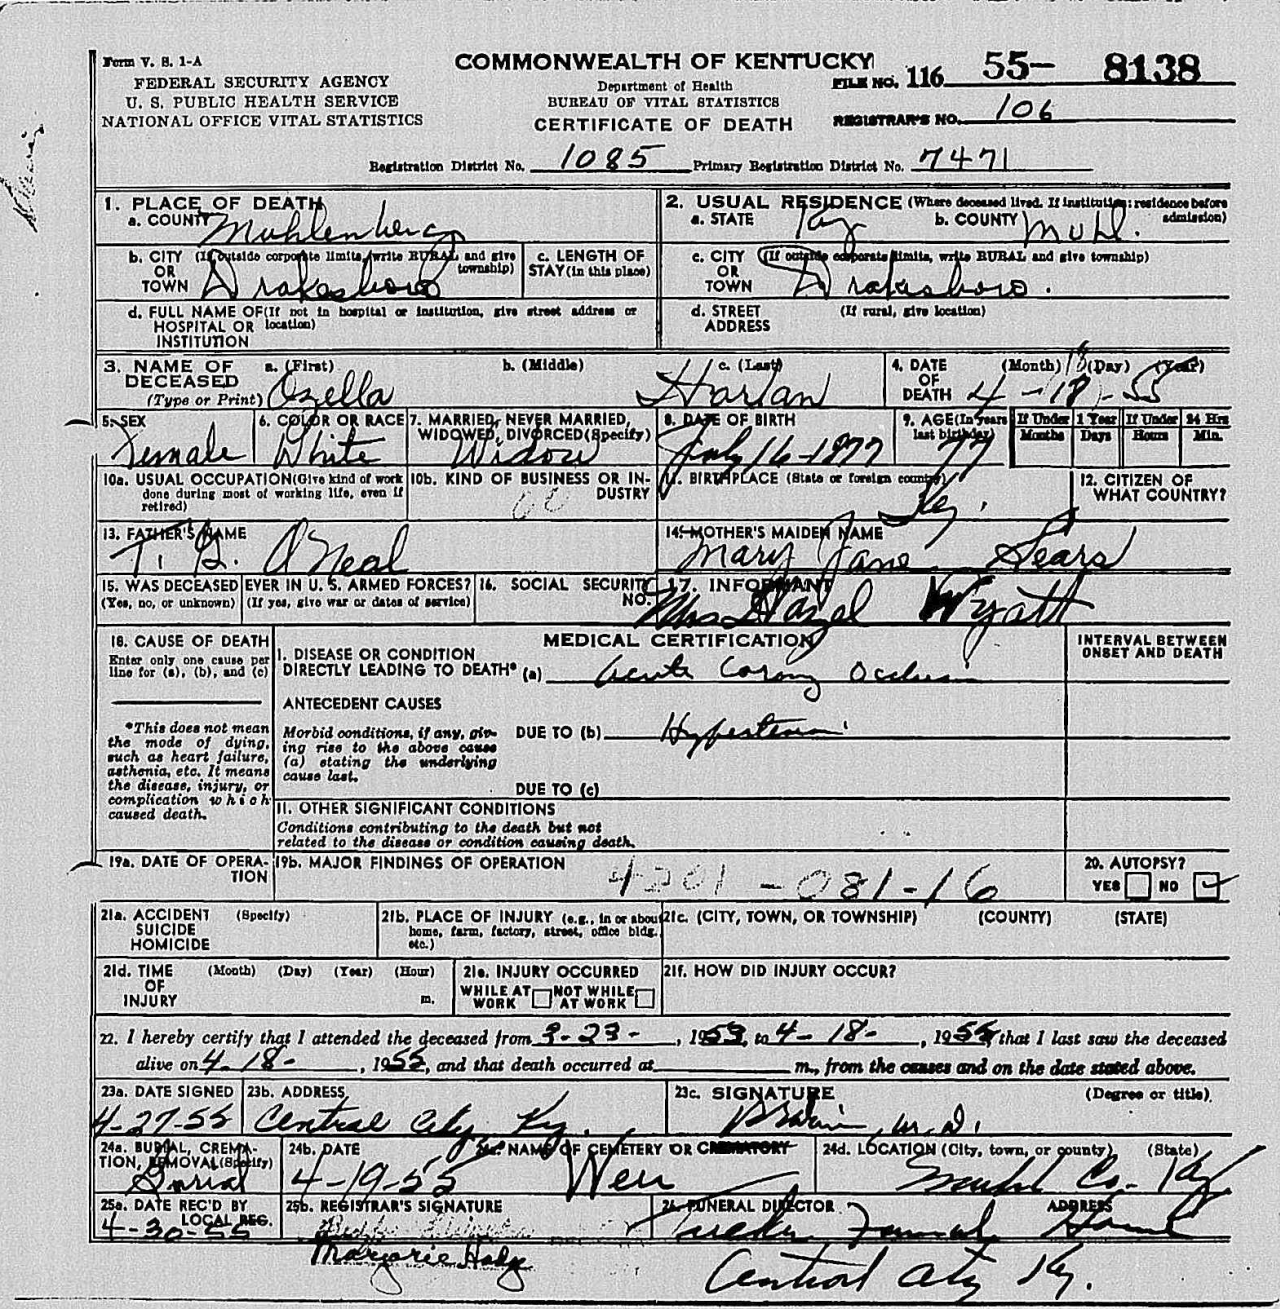 Form V. S. 1-A
FEDERAL SECURITY AGENCY
U. S. PUBLIC HEALTH SERVICE
NATIONAL OFFICE VITAL STATISTICS
COMMONWEALTH OF KENTUCKY
Department of Health
BUREAU OF VITAL STATISTICS
CERTIFICATE OF DEATH
FILE NO. 116 55- 8138
REGISTRAR'S NO. 106
Registration District No. 1085 Primary Registration District No. 7471
1. PLACE OF DEATH
a. COUNTY Muhlenberg
2. USUAL RESIDENCE (Where deceased lived. If institution: residence before admission)
a. STATE Ky b. COUNTY Muhl.
b. CITY (If outside corporate limits, write RURAL and give township)
OR
TOWN Drakesboro
c. LENGTH OF
STAY (in this place)
c. CITY (If outside corporate limits, write RURAL and give township)
OR
TOWN Drakesboro.
d. FULL NAME OF (If not in hospital or institution, give street address or location)
HOSPITAL OR
INSTITUTION
d. STREET (If rural, give location)
ADDRESS
3. NAME OF DECEASED (Type or Print)
a. (First) b. (Middle) c. (Last)
Ozella Harlan
4. DATE OF DEATH (Month) (Day) (Year)
18
4-18-55
5. SEX
Female
6. COLOR OR RACE
White
7. MARRIED, NEVER MARRIED,
WIDOWED, DIVORCED (Specify)
Widow
8. DATE OF BIRTH
July 16-1877
9. AGE (In years last birthday)
77
If Under 1 Year
Months Days
If Under 24 Hrs
Hours Min.
10a. USUAL OCCUPATION (Give kind of work
done during most of working life, even if
retired)
10b. KIND OF BUSINESS OR INDUSTRY
00
11. BIRTHPLACE (State or foreign country)
Ky.
12. CITIZEN OF
WHAT COUNTRY?
13. FATHER'S NAME
T. G. O'Neal
14. MOTHER'S MAIDEN NAME
Mary Jane Sears
15. WAS DECEASED EVER IN U. S. ARMED FORCES?
(Yes, no, or unknown) (If yes, give war or dates of service)
16. SOCIAL SECURITY
NO.
17. INFORMANT
Mrs Hazel Wyatt
18. CAUSE OF DEATH
Enter only one cause per
line for (a), (b), and (c)
*This does not mean
the mode of dying,
such as heart failure,
asthenia, etc. It means
the disease, injury, or
complication which
caused death.
MEDICAL CERTIFICATION
INTERVAL BETWEEN
ONSET AND DEATH
I. DISEASE OR CONDITION
DIRECTLY LEADING TO DEATH* (a) Acute Corony Occlusion
ANTECEDENT CAUSES
Morbid conditions, if any, giving rise to the above cause
(a) stating the underlying
cause last.
DUE TO (b) Hypertension
DUE TO (c)
II. OTHER SIGNIFICANT CONDITIONS
Conditions contributing to the death but not
related to the disease or condition causing death.
19a. DATE OF OPERATION
19b. MAJOR FINDINGS OF OPERATION
4201-081-16
20. AUTOPSY?
YES NO
21a. ACCIDENT (Specify)
SUICIDE
HOMICIDE
21b. PLACE OF INJURY (e.g., in or about
home, farm, factory, street, office bldg.
etc.)
21c. (CITY, TOWN, OR TOWNSHIP) (COUNTY) (STATE)
21d. TIME (Month) (Day) (Year) (Hour)
OF
INJURY m.
21e. INJURY OCCURRED
WHILE AT WORK NOT WHILE AT WORK
21f. HOW DID INJURY OCCUR?
22. I hereby certify that I attended the deceased from 3-23-, 1953, to 4-18-, 1955, that I last saw the deceased
alive on 4-18-, 1955, and that death occurred at m., from the causes and on the date stated above.
23a. DATE SIGNED
4-27-55
23b. ADDRESS
Central City Ky.
23c. SIGNATURE (Degree or title)
M.D.
24a. BURIAL, CREMATION, REMOVAL (Specify)
Burial
24b. DATE
4-19-55
24c. NAME OF CEMETERY OR CREMATORY
Weir
24d. LOCATION (City, town, or county) (State)
Muhl Co. Ky
25a. DATE REC'D BY
LOCAL REG.
4-30-55
25b. REGISTRAR'S SIGNATURE
Marjorie Haley
26. FUNERAL DIRECTOR ADDRESS
Tucker Funeral Home
Central City Ky.